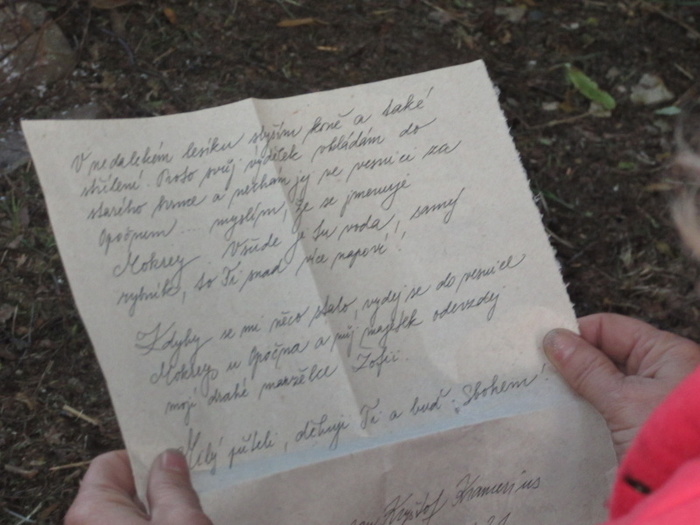 V nedalekém lesíku slyším koně a také
střílení. Proto svůj výdělek vkládám do
starého hrnce a nechám jej ve vesnici za
Opočnem ... myslím, že se jmenuje
Mokrey. Všude je tu voda, samý
rybník, to Ti snad více napoví!
Kdyby se mi něco stalo, vydej se do vesnice
Mokrey u Opočna a můj majetek odevzdej
mojí drahé manželce Žofii.
Milý příteli, děkuji Ti a buď „Sbohem!
Kryštof Kramerius